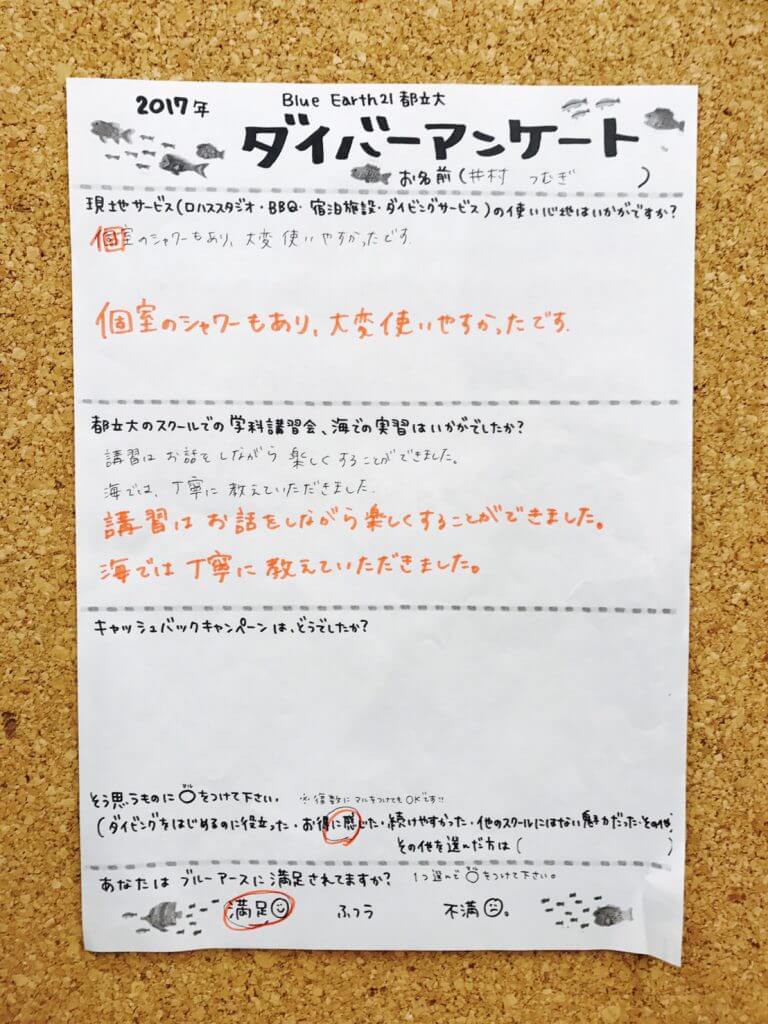 2017年
Blue Earth21 都立大
ダイバーアンケート
お名前(井村 つむぎ )
現地サービス(ロハススタジオ・BBQ・宿泊施設・ダイビングサービス)の使い心地はいかがですか?
個室のシャワーもあり、大変使いやすかったです.
個室のシャワーもあり、大変使いやすかったです.
都立大のスクールでの学科講習会、海での実習はいかがでしたか?
講習はお話をしながら楽しくすることができました。
海では、丁寧に教えていただきました.
講習はお話をしながら楽しくすることができました。
海では丁寧に教えていただきました。
キャッシュバックキャンペーンは、どうでしたか?
そう思うものに○をつけて下さい. ※複数にマルをつけてもOKです!!
(ダイビングをはじめるのに役立った・お得に感じた・続けやすかった・他のスクールにはない魅力だった・その他
その他を選んだ方は( )
あなたは ブルーアースに満足されてますか? 1つ選んで○をつけて下さい。
満足 ふつう 不満。